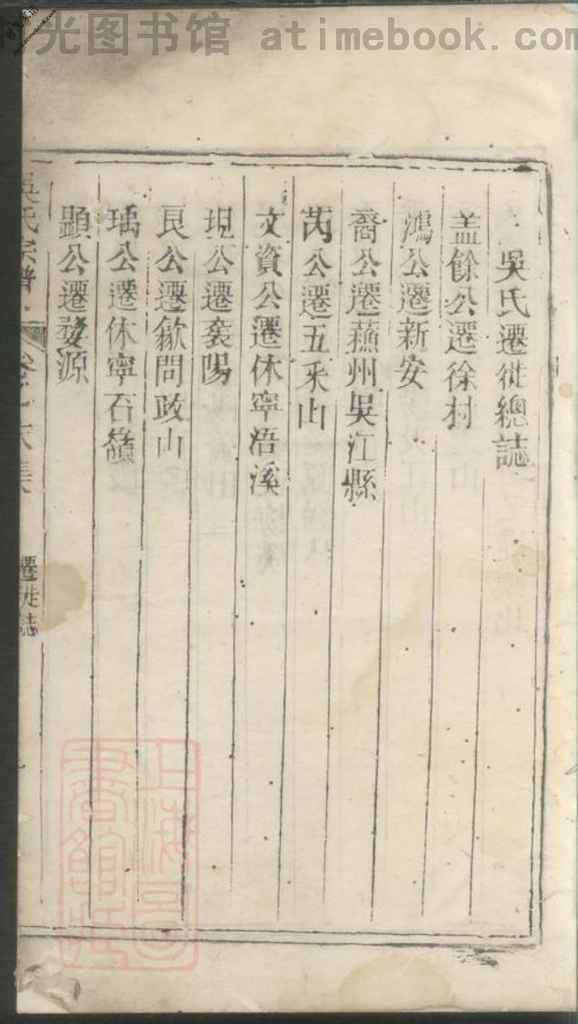 时光图书馆 atimebook.com
吳氏遷徙總誌
盖餘公遷徐村
鴻公遷新安
裔公遷蘓州吳江縣
芮公遷五釆山
文資公遷休寧浯溪
珇公遷襄陽
良公遷歙問政山
瑀公遷休寧石嶺
顕公遷婺源
吳氏宗譜
遷徙誌
上海圖
書館藏